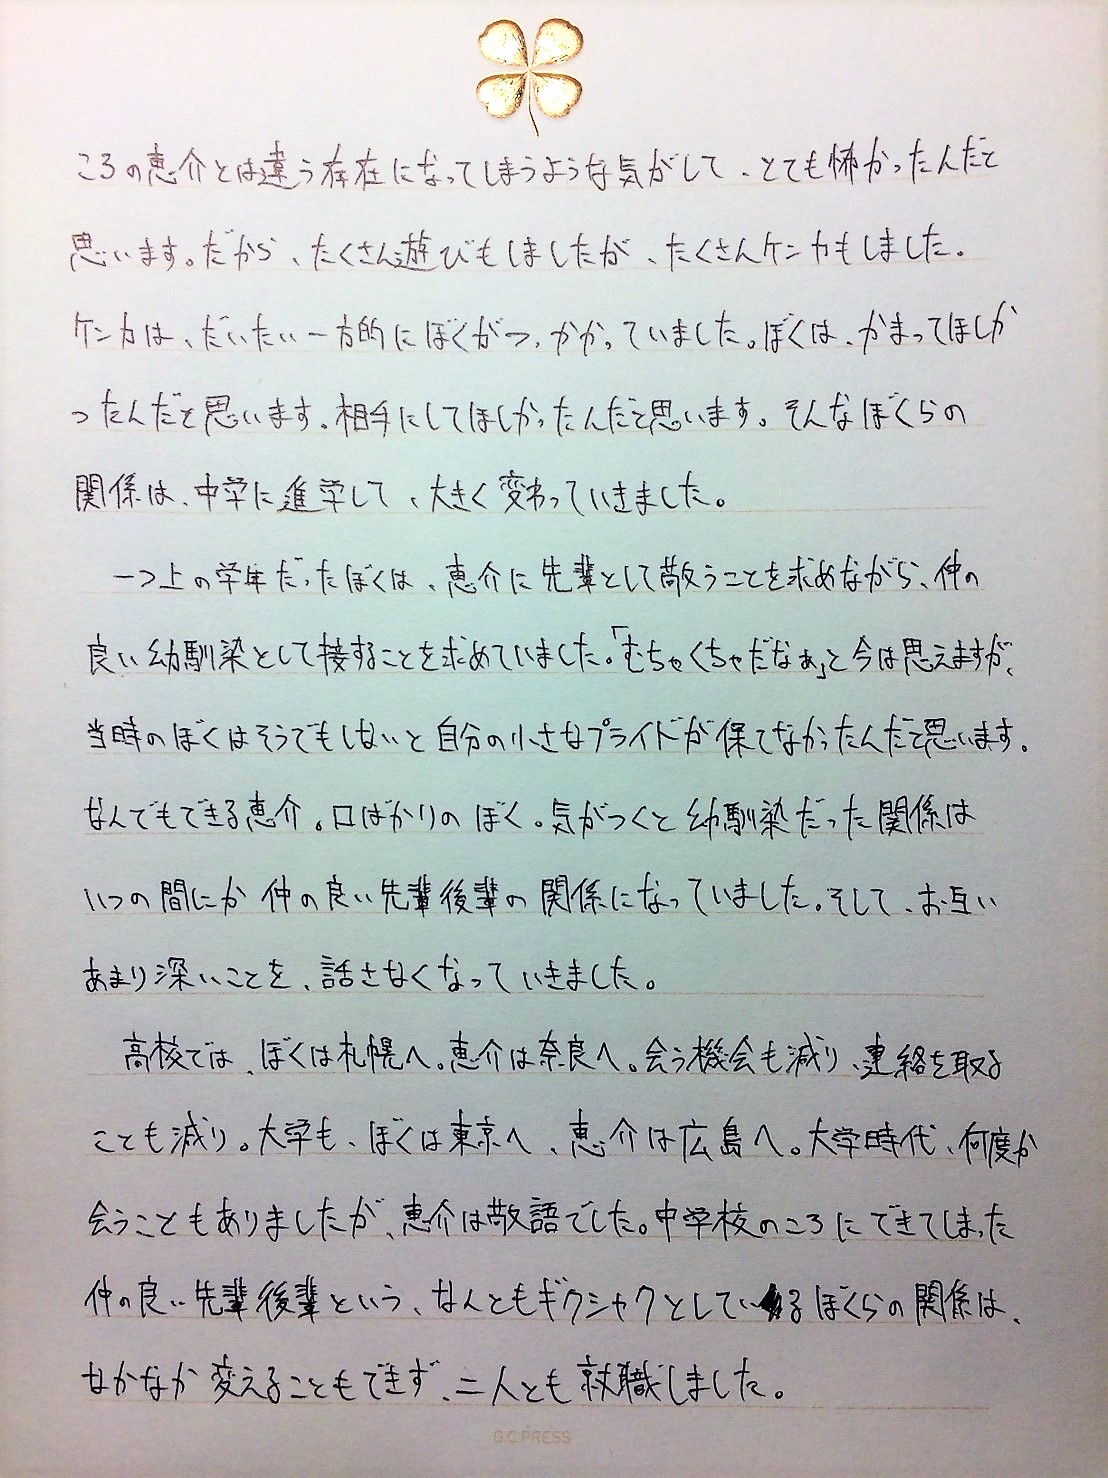 ころの恵介とは違う存在になってしまうような気がして、とても怖かったんだと
思います。だから、たくさん遊びもしましたが、たくさんケンカもしました。
ケンカは、だいたい一方的にぼくがつっかかっていました。ぼくは、かまってほしか
ったんだと思います。相手にしてほしかったんだと思います。そんなぼくらの
関係は、中学に進学して、大きく変わっていきました。
一つ上の学年だったぼくは、恵介に先輩として敬うことを求めながら、仲の
良い幼馴染として接することを求めていました。「むちゃくちゃだなぁ」と今は思えますが、
当時のぼくはそうでもしないと自分の小さなプライドが保てなかったんだと思います。
なんでもできる恵介。口ばかりのぼく。気がつくと幼馴染だった関係は
いつの間にか仲の良い先輩後輩の関係になっていました。そして、お互い
あまり深いことを、話さなくなっていきました。
高校では、ぼくは札幌へ。恵介は奈良へ。会う機会も減り、連絡を取る
ことも減り。大学も、ぼくは東京へ、恵介は広島へ。大学時代、何度か
会うこともありましたが、恵介は敬語でした。中学校のころにできてしまった
仲の良い先輩後輩という、なんともギクシャクとしているぼくらの関係は、
なかなか変えることもできず、二人とも就職しました。
G.C.PRESS